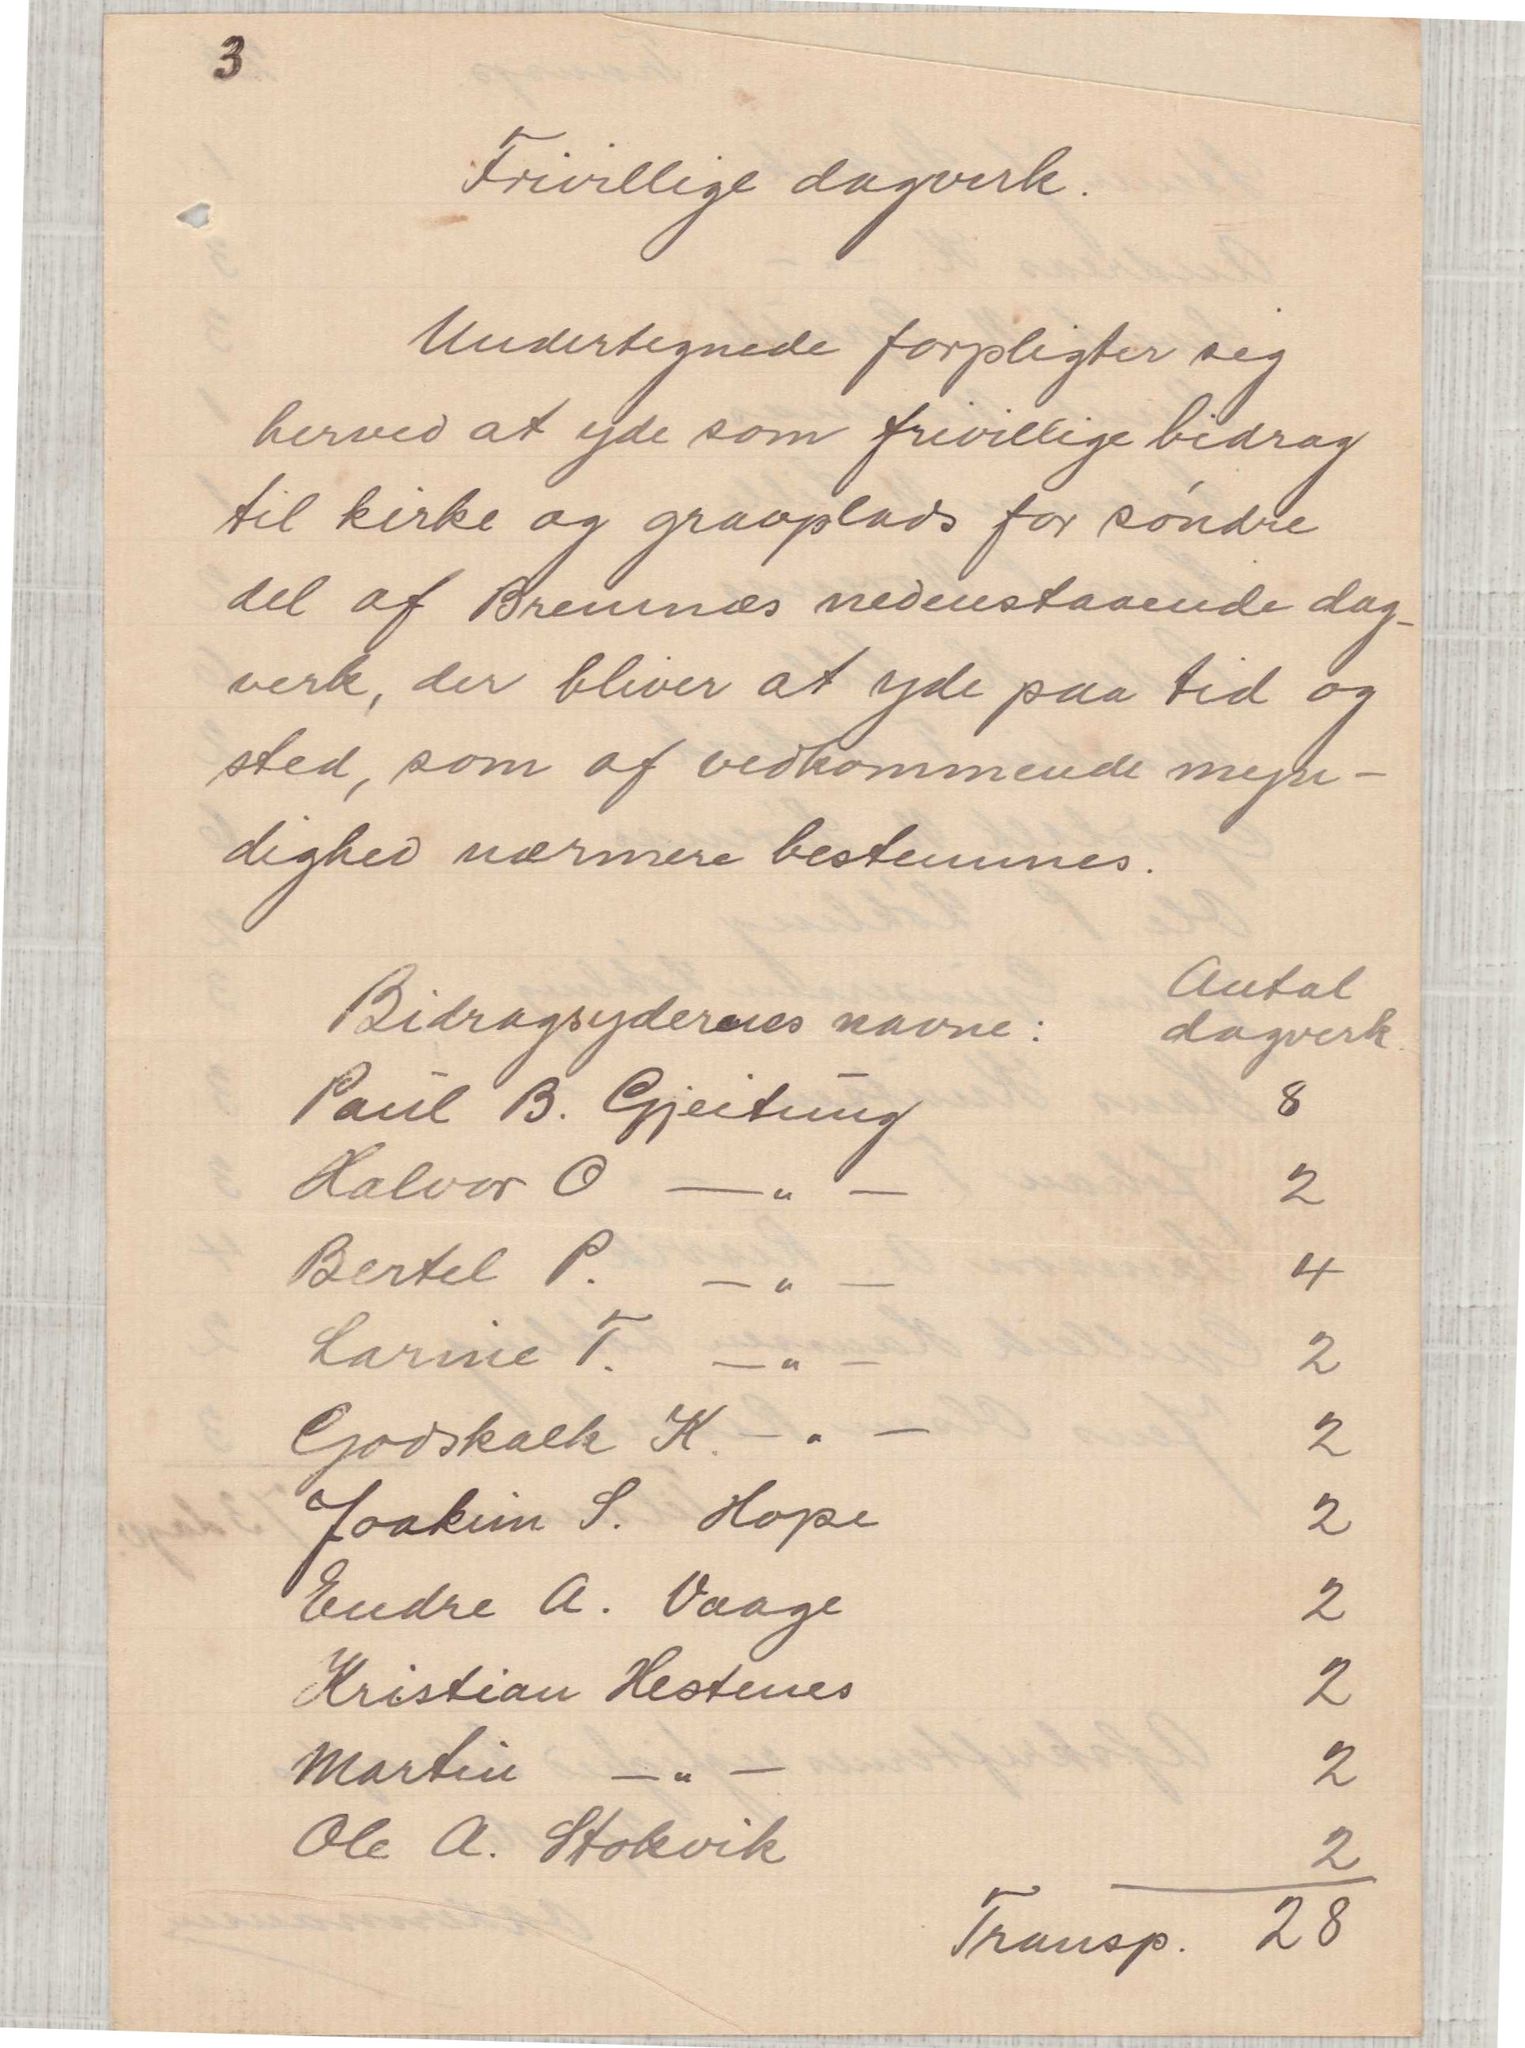 3
Frivillige dagverk.
Undertegnede forpligter sig
herved at yde som frivillige bidrag
til kirke og gravplads for søndre
del af Bremnæs nedenstaaende dag-
verk, der bliver at yde paa tid og
sted, som af vedkommende myn-
dighed nærmere bestemmes.
Bidragsydernes navne: Antal dagverk.
Paul B. Gjeitung 8
Halvor O — " — 2
Bertel P. — " — 4
Larine T. — " — 2
Godskalk K. — " — 2
Joakim S. Hope 2
Endre A. Vaage 2
Kristian Hestenes 2
Martin — " — 2
Ole A. Stokvik 2
Transp. 28